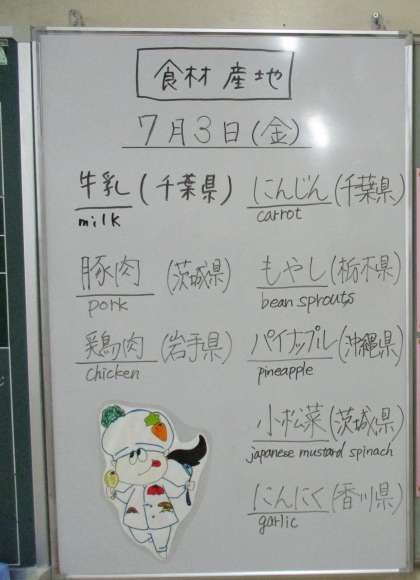 食材産地
7月3日(金)
牛乳(千葉県)
milk
豚肉(茨城県)
pork
鶏肉(岩手県)
chicken
にんじん(千葉県)
carrot
もやし(栃木県)
bean sprouts
パイナップル(沖縄県)
pineapple
小松菜(茨城県)
japanese mustard spinach
にんにく(香川県)
garlic